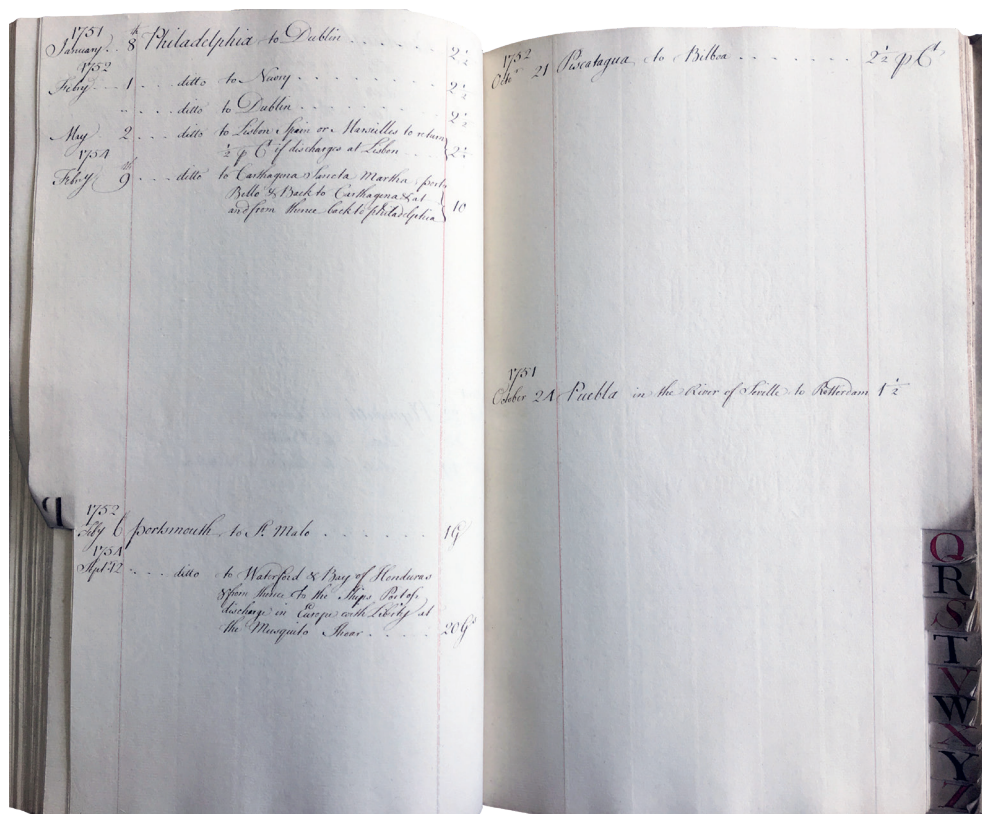 1751
January 8th Philadelphia to Dublin . . . . . . . 2½
1752
Febry 1 . . . ditto to Newry . . . . . . . . 2½
" . . . ditto to Dublin . . . . . . . . 2½
May 2 . . . ditto to Lisbon Spain or Marseilles to return
½ p Ct if discharges at Lisbon . . . 2½
1754
Febry 9th . . . ditto to Carthagena Sancta Martha porto
Bello & Back to Carthagena & at
and from thence back to philadelphia 10
1752
6 portsmouth to St. Malo . . . . . . . 1 Gs
1754
Sept 12 . . . ditto to Waterford & Bay of Honduras
& from thence to the Ships Port of
discharge in Europe with Liberty at
the Musquito Shoar . . . . . 20 Gs
P
1752
Octr 21 Piscataqua to Bilboa . . . . . . . 2½ p Ct
1751
October 24 Puebla in the River of Seville to Rotterdam 1½
Q
R
S
T
V
W
X
Y
Z